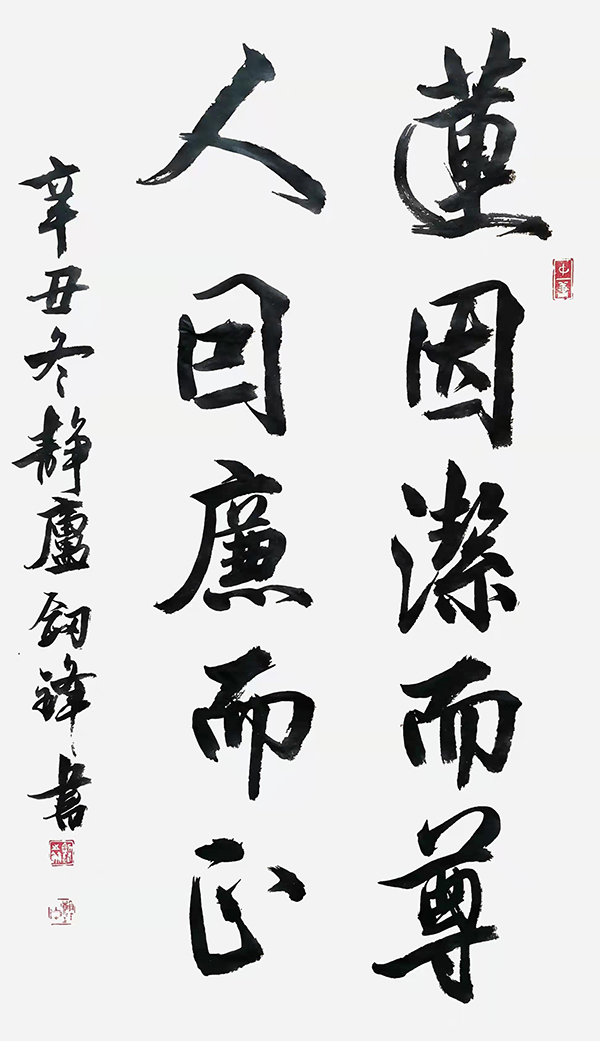 蓮因潔而尊
人因廉而正
辛丑冬静廬釼鋒書